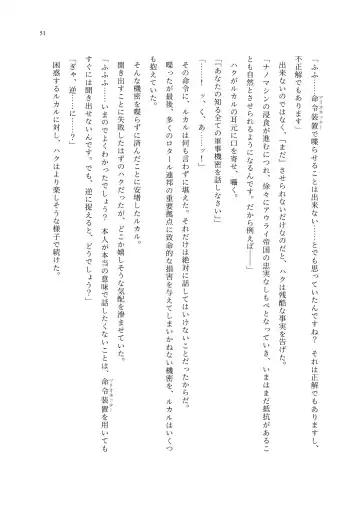 51
「ふふふ……命令装置で喋らせることは出来ない……とでも思っていたんですね？　それは正解でもありますし、
不正解でもあります」
出来ないのではなく、「まだ」させられないだけなのだと、ハクは残酷な事実を告げた。
「ナノマシンの浸食が進むにつれ、徐々にアウライ帝国の忠実なしもべとなっていき、いまはまだ抵抗があるこ
とも自然とさせられるようになるんです。だから例えば――」
ハクがルカルの耳元に口を寄せ、囁く。
「あなたの知る全ての軍事機密を話しなさい」
「……！　ッ、く、あ……ッ！」
その命令に、ルカルは何も言わずに堪えた。それだけは絶対に話してはいけないことだったからだ。
喋ったが最後、多くのロタール連邦の重要拠点に致命的な損害を与えてしまいかねない機密を、ルカルはいくつ
も抱えていた。
そんな機密を喋らずに済んだことに安堵したルカル。
聞き出すことに失敗したはずのハクだったが、どこか嬉しそうな気配を滲ませていた。
「ふふふ……いまのでよくわかったでしょう？　本人が本当の意味で話したくないことは、命令装置を用いても
すぐには聞き出せないんです。でも、逆に捉えると、どうでしょう？」
「ぎゃ、逆……に……？」
困惑するルカルに対し、ハクはより楽しそうな様子で続けた。